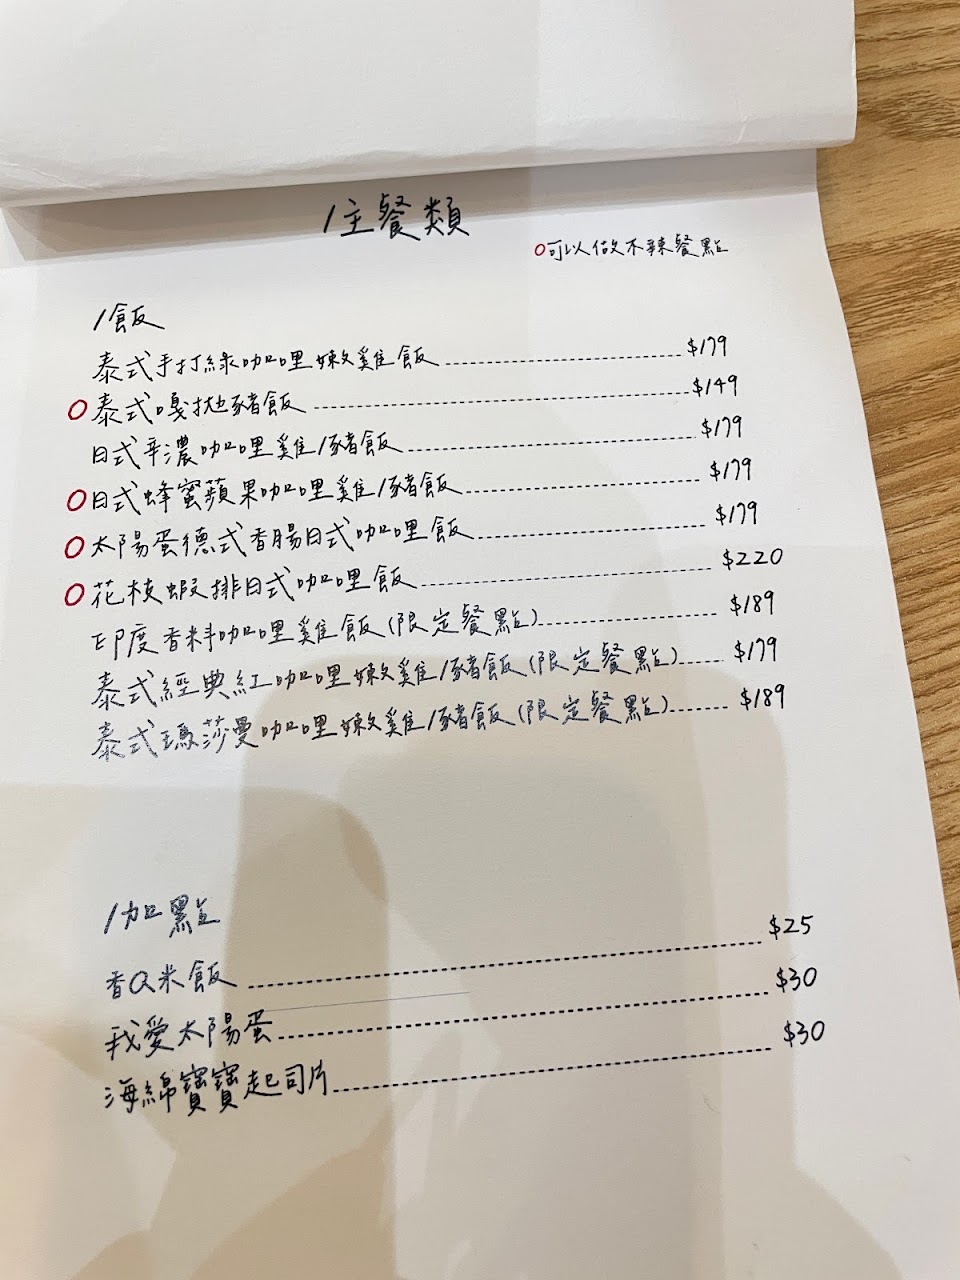 /主餐類
○可以做不辣餐點
/飯
泰式手打綠咖哩嫩雞飯 $179
○泰式嘎拋豬飯 $149
日式辛濃咖哩雞/豬飯 $179
○日式蜂蜜蘋果咖哩雞/豬飯 $179
○太陽蛋德式香腸日式咖哩飯 $179
○花枝蝦排日式咖哩飯 $220
印度香料咖哩雞飯(限定餐點) $189
泰式經典紅咖哩嫩雞/豬飯(限定餐點) $179
泰式瑪莎曼咖哩嫩雞/豬飯(限定餐點) $189
/加點
香Q米飯 $25
我愛太陽蛋 $30
海綿寶寶起司片 $30